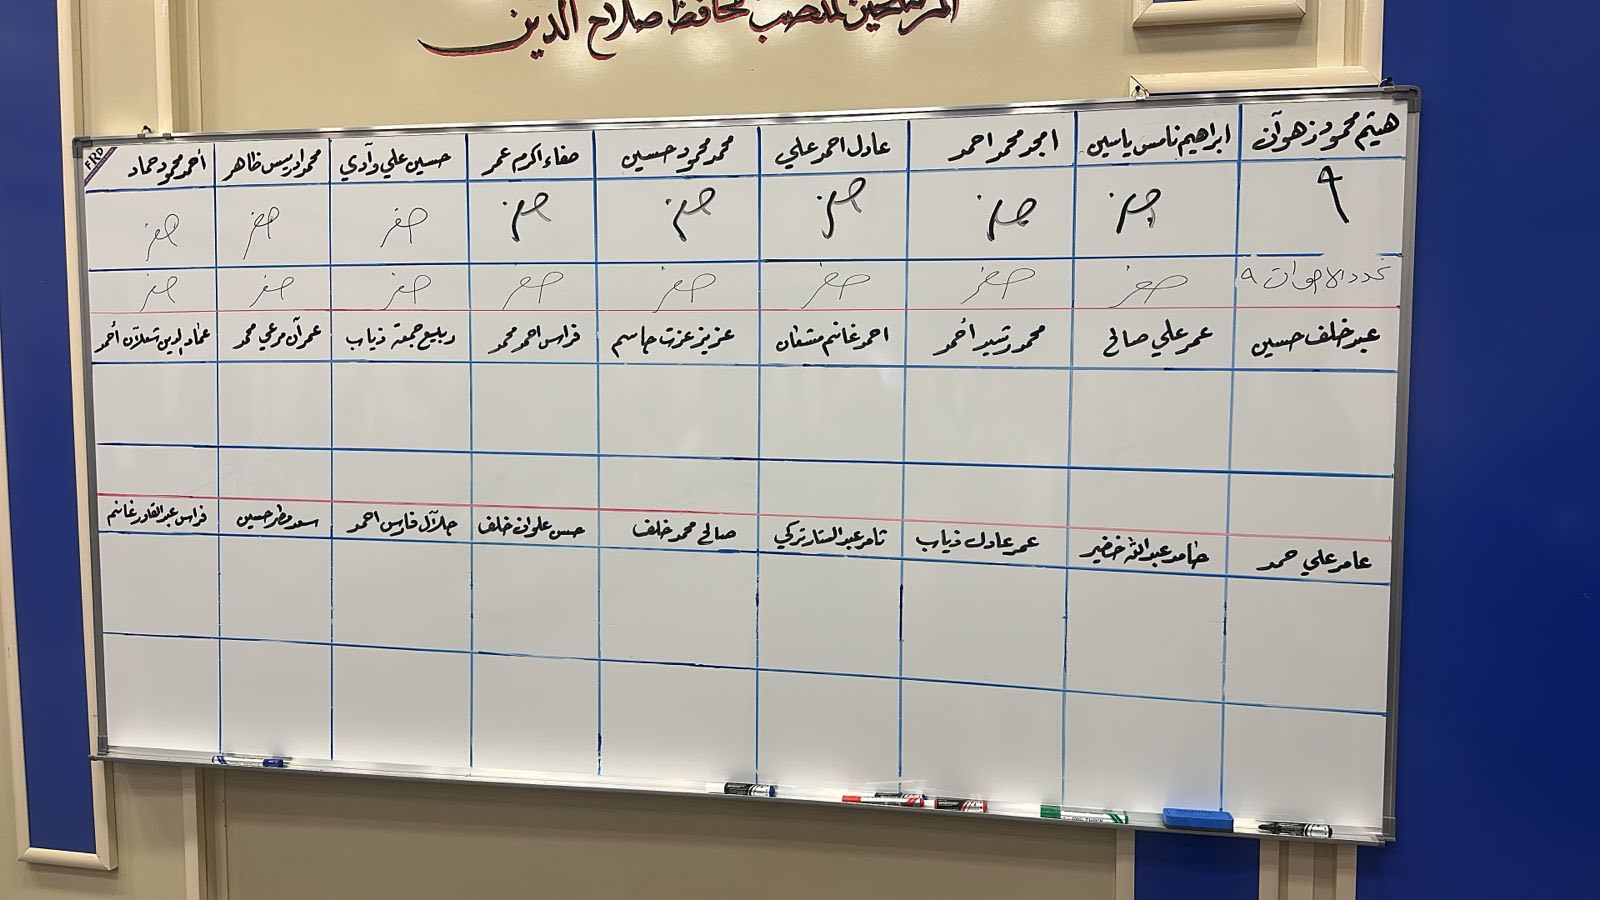 المرشحين لمنصب محافظ صلاح الدين
هيثم محمود زهوان ابراهيم نامس ياسين امجد محمد احمد عادل احمد علي محمد محمود حسين صفاء اكرم عمر حسين علي وادي محمد ادريس ظاهر أحمد محمود حماد
٩ صفر صفر صفر صفر صفر صفر صفر صفر
عدد الاصوات ٩ صفر صفر صفر صفر صفر صفر صفر صفر
عبد خلف حسين عمر علي صالح محمد رشيد أحمد احمد غانم مشعان عزيز عزت جاسم فراس احمد محمد ربيع جمعة ذياب عمران مرعي محمد عماد الدين شعلان أحمد
عامر علي حمد حامد عبدالله خضير عمر عادل ذياب ثامر عبدالستار تركي صالح محمد خلف حسن علوان خلف جلال فارس احمد سعد مطر حسين فراس عبدالقادر غانم
FRD